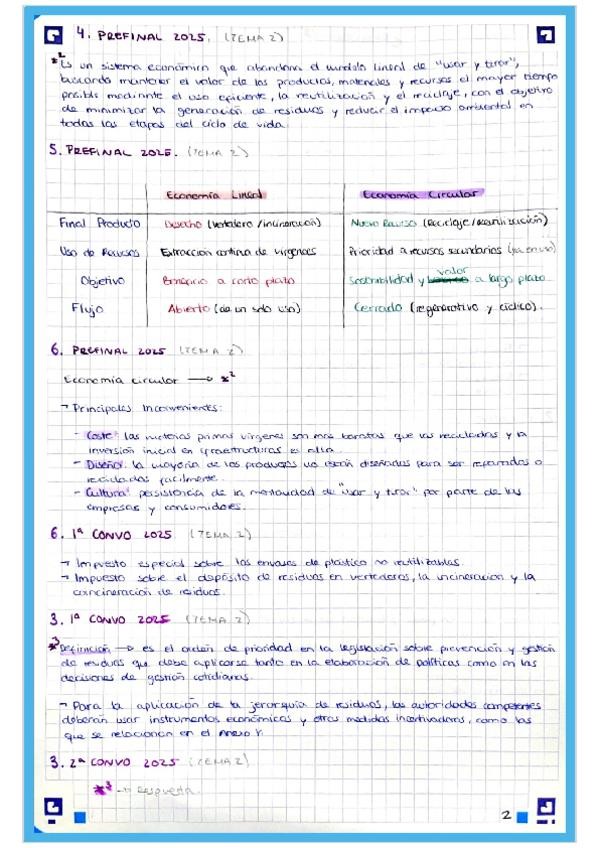 4. PREFINAL 2025. (TEMA 2)
*² Es un sistema económico que abandona el modelo lineal de "usar y tirar",
buscando mantener el valor de los productos, materiales y recursos el mayor tiempo
posible mediante el uso eficiente, la reutilización y el reciclaje, con el objetivo
de minimizar la generación de residuos y reducir el impacto ambiental en
todas las etapas del ciclo de vida.
5. PREFINAL 2025. (TEMA 2)
Economía Lineal Economía Circular
Final Producto Desecho (vertedero/incineración) Nuevo Recurso (Reciclaje/reutilización)
Uso de Recursos Extracción continua de vírgenes Prioridad a recursos secundarios (ya en uso)
Objetivo Beneficio a corto plazo Sostenibilidad y valor a largo plazo
Flujo Abierto (de un solo uso) Cerrado (regenerativo y cíclico).
6. PREFINAL 2025 (TEMA 2)
Economía circular → *²
→ Principales Inconvenientes:
- Coste: las materias primas vírgenes son mas baratas que las recicladas y la
inversión inicial en infraestructuras es alta.
- Diseño: la mayoría de los productos no están diseñados para ser reparados o
reciclados fácilmente.
- Cultura: persistencia de la mentalidad de "usar y tirar" por parte de las
empresas y consumidores.
6. 1ª CONVO 2025 (TEMA 2)
→ Impuesto especial sobre los envases de plástico no reutilizables.
→ Impuesto sobre el depósito de residuos en vertederos, la incineración y la
coincineración de residuos.
3. 1ª CONVO 2025 (TEMA 2)
*³ Definición → es el orden de prioridad en la legislación sobre prevención y gestión
de residuos que debe aplicarse tanto en la elaboración de políticas como en las
decisiones de gestión cotidianas.
→ Para la aplicación de la jerarquía de residuos, las autoridades competentes
deberán usar instrumentos económicos y otras medidas incentivadoras, como las
que se relacionan en el Anexo V.
3. 2ª CONVO 2025 (TEMA 2)
*³ → Respuesta.
2